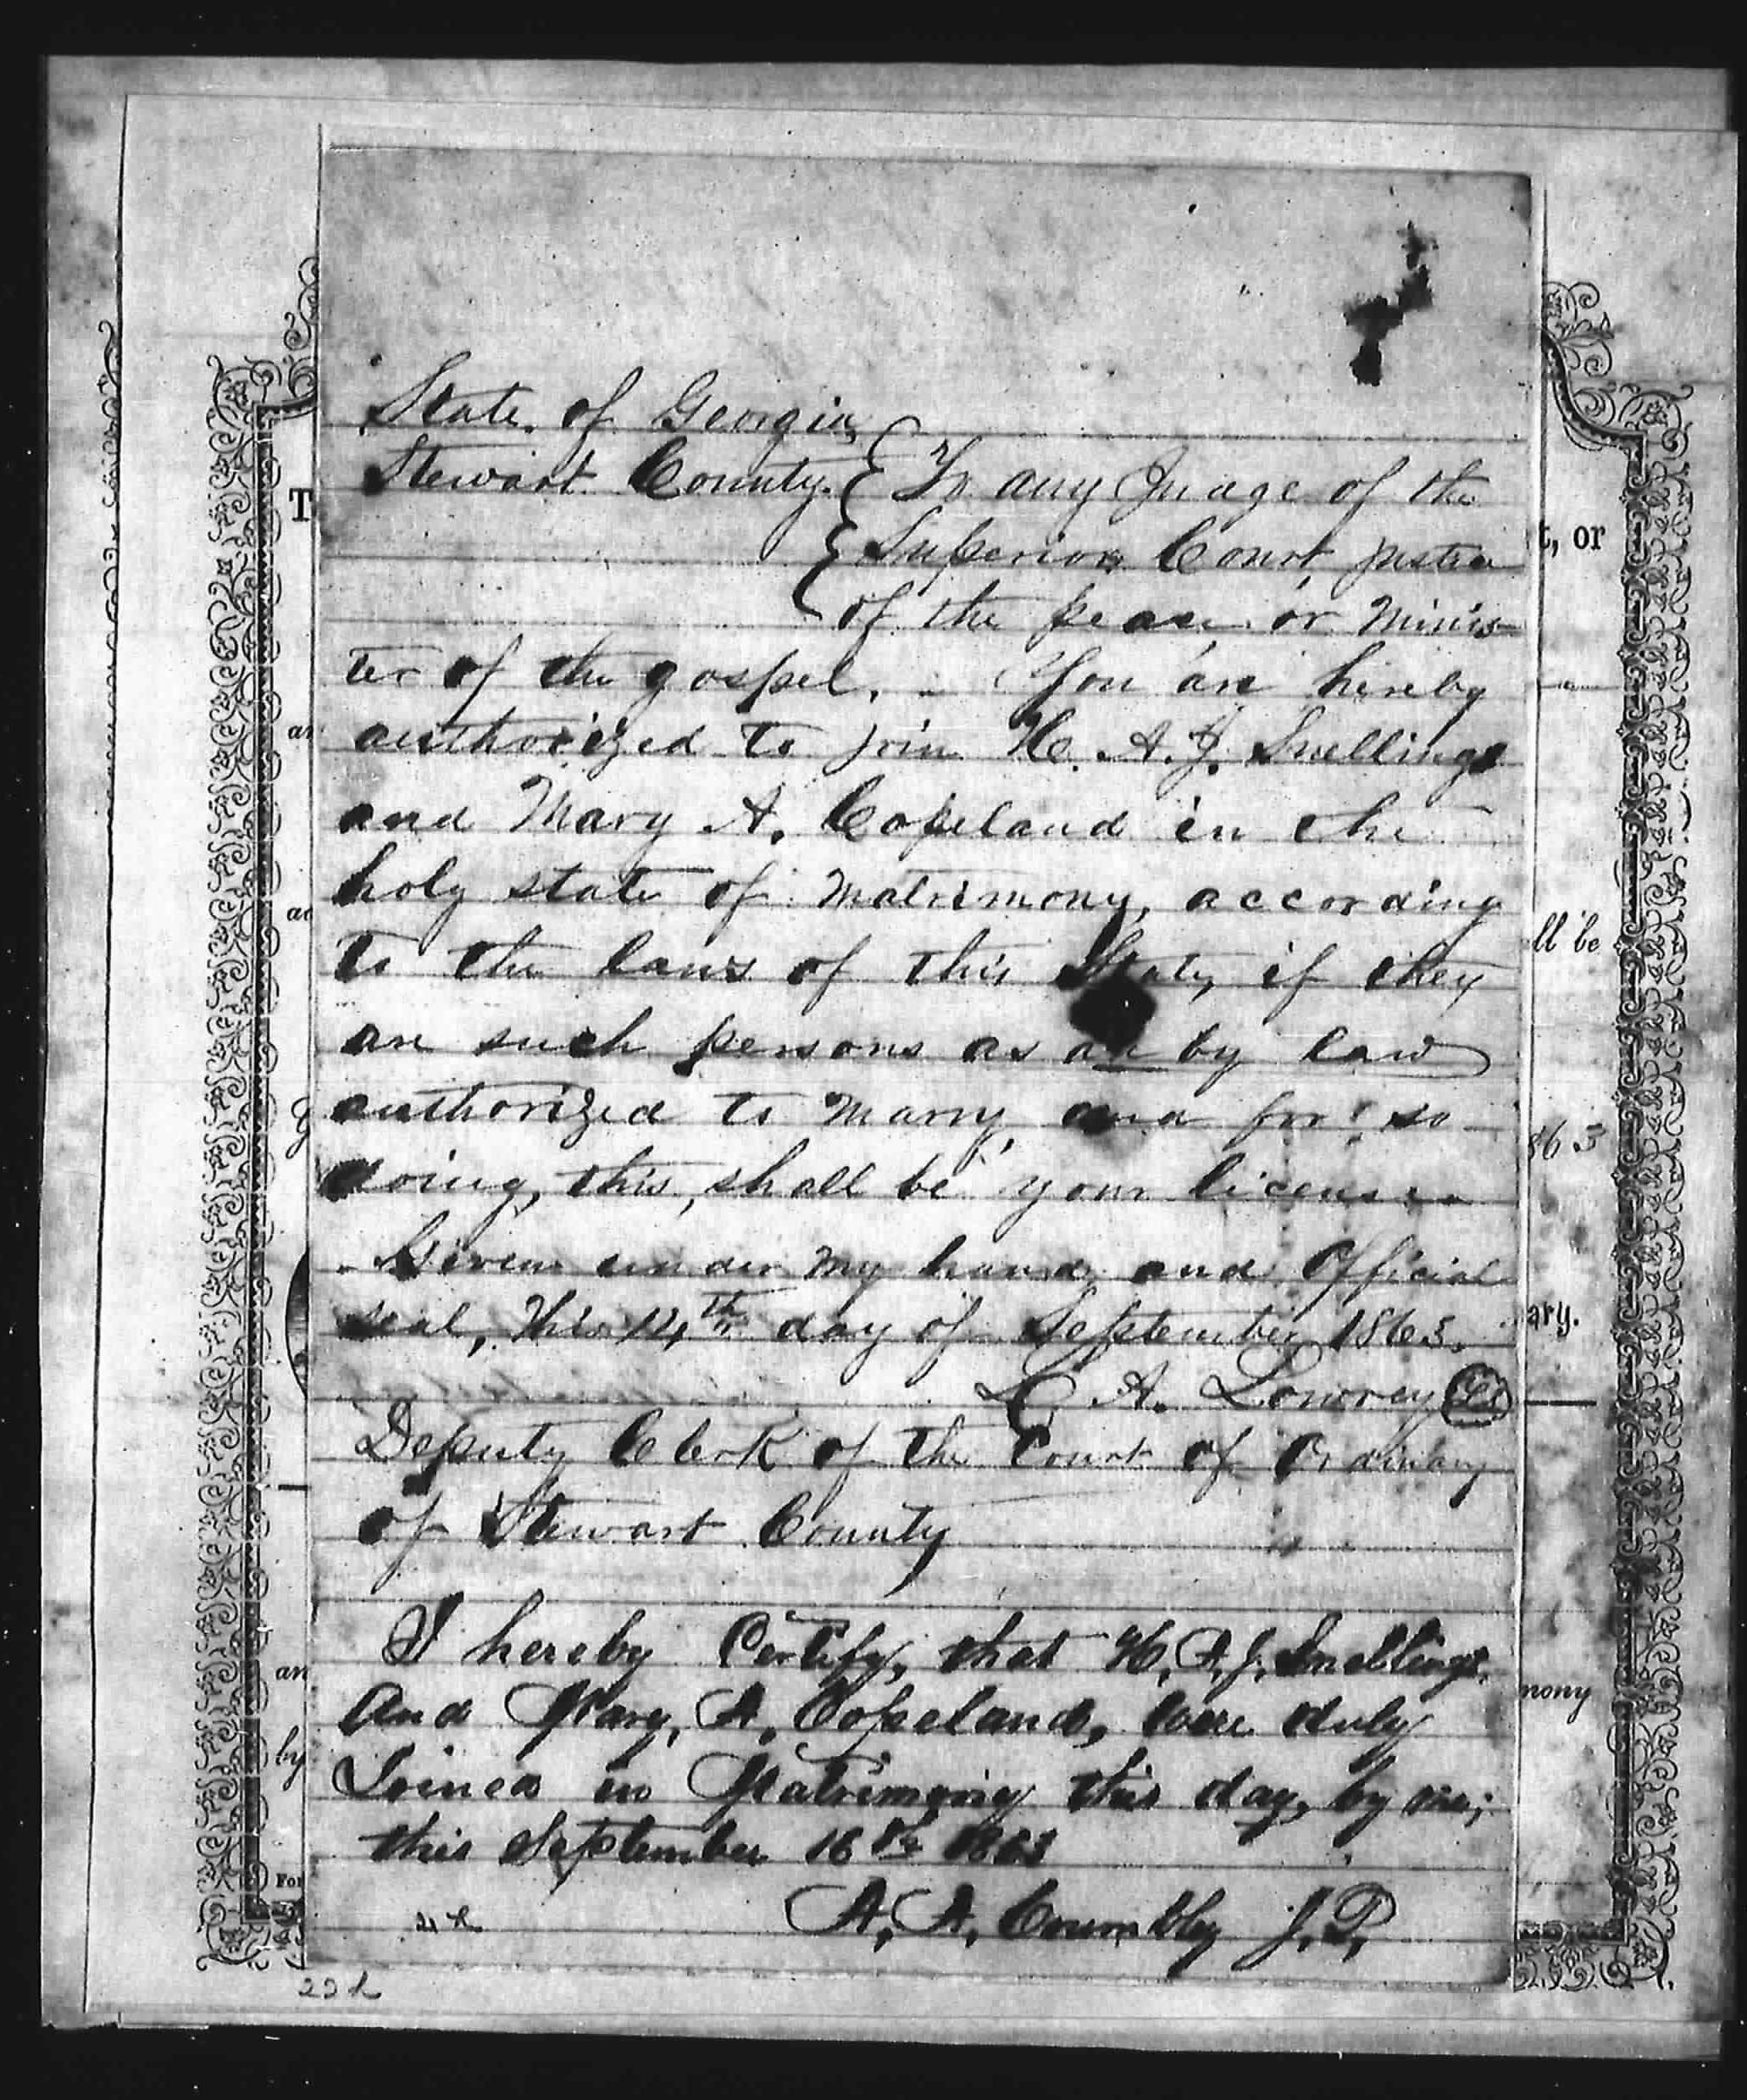 State of Georgia
Stewart County. To any Judge of the
Superior Court, justice
of the peace or minis-
ter of the gospel. You are hereby
authorized to join H. A. J. Snellings
and Mary A. Copeland in the
holy state of matrimony, according
to the laws of this State, if they
are such persons as are by law
authorized to marry, and for so
doing, this, shall be your license
Given under my hand and Official
seal, this 14th day of September 1863.
L A. Lowrey LS
Deputy Clerk of the Court of Ordinary
of Stewart County
I hereby Certify, that H. A. J. Snellings,
And Mary, A, Copeland, were duly
Joined in Matrimony this day, by me;
this September 16th 1863
A, A, Crumbley J. P,
T
t, or
an
ac
ll be
863
ary.
an
mony
by
For